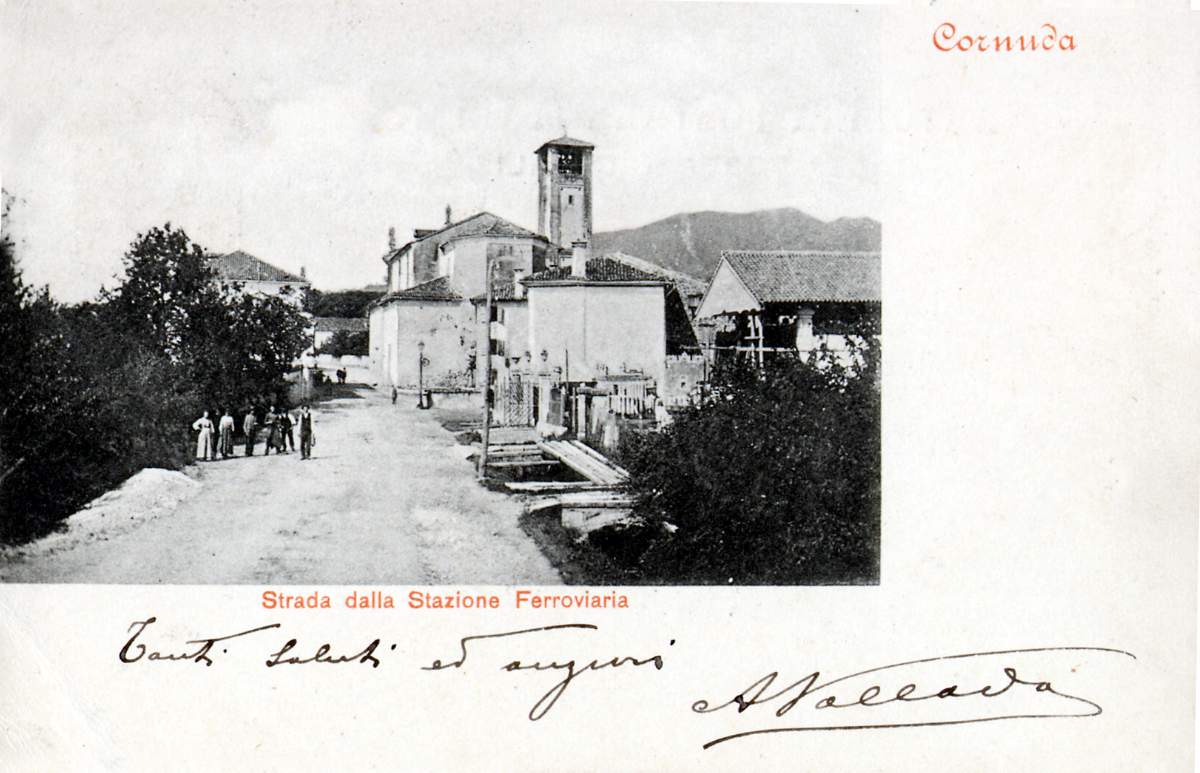 Cornuda
Strada dalla Stazione Ferroviaria
Tanti saluti ed auguri
AVallada